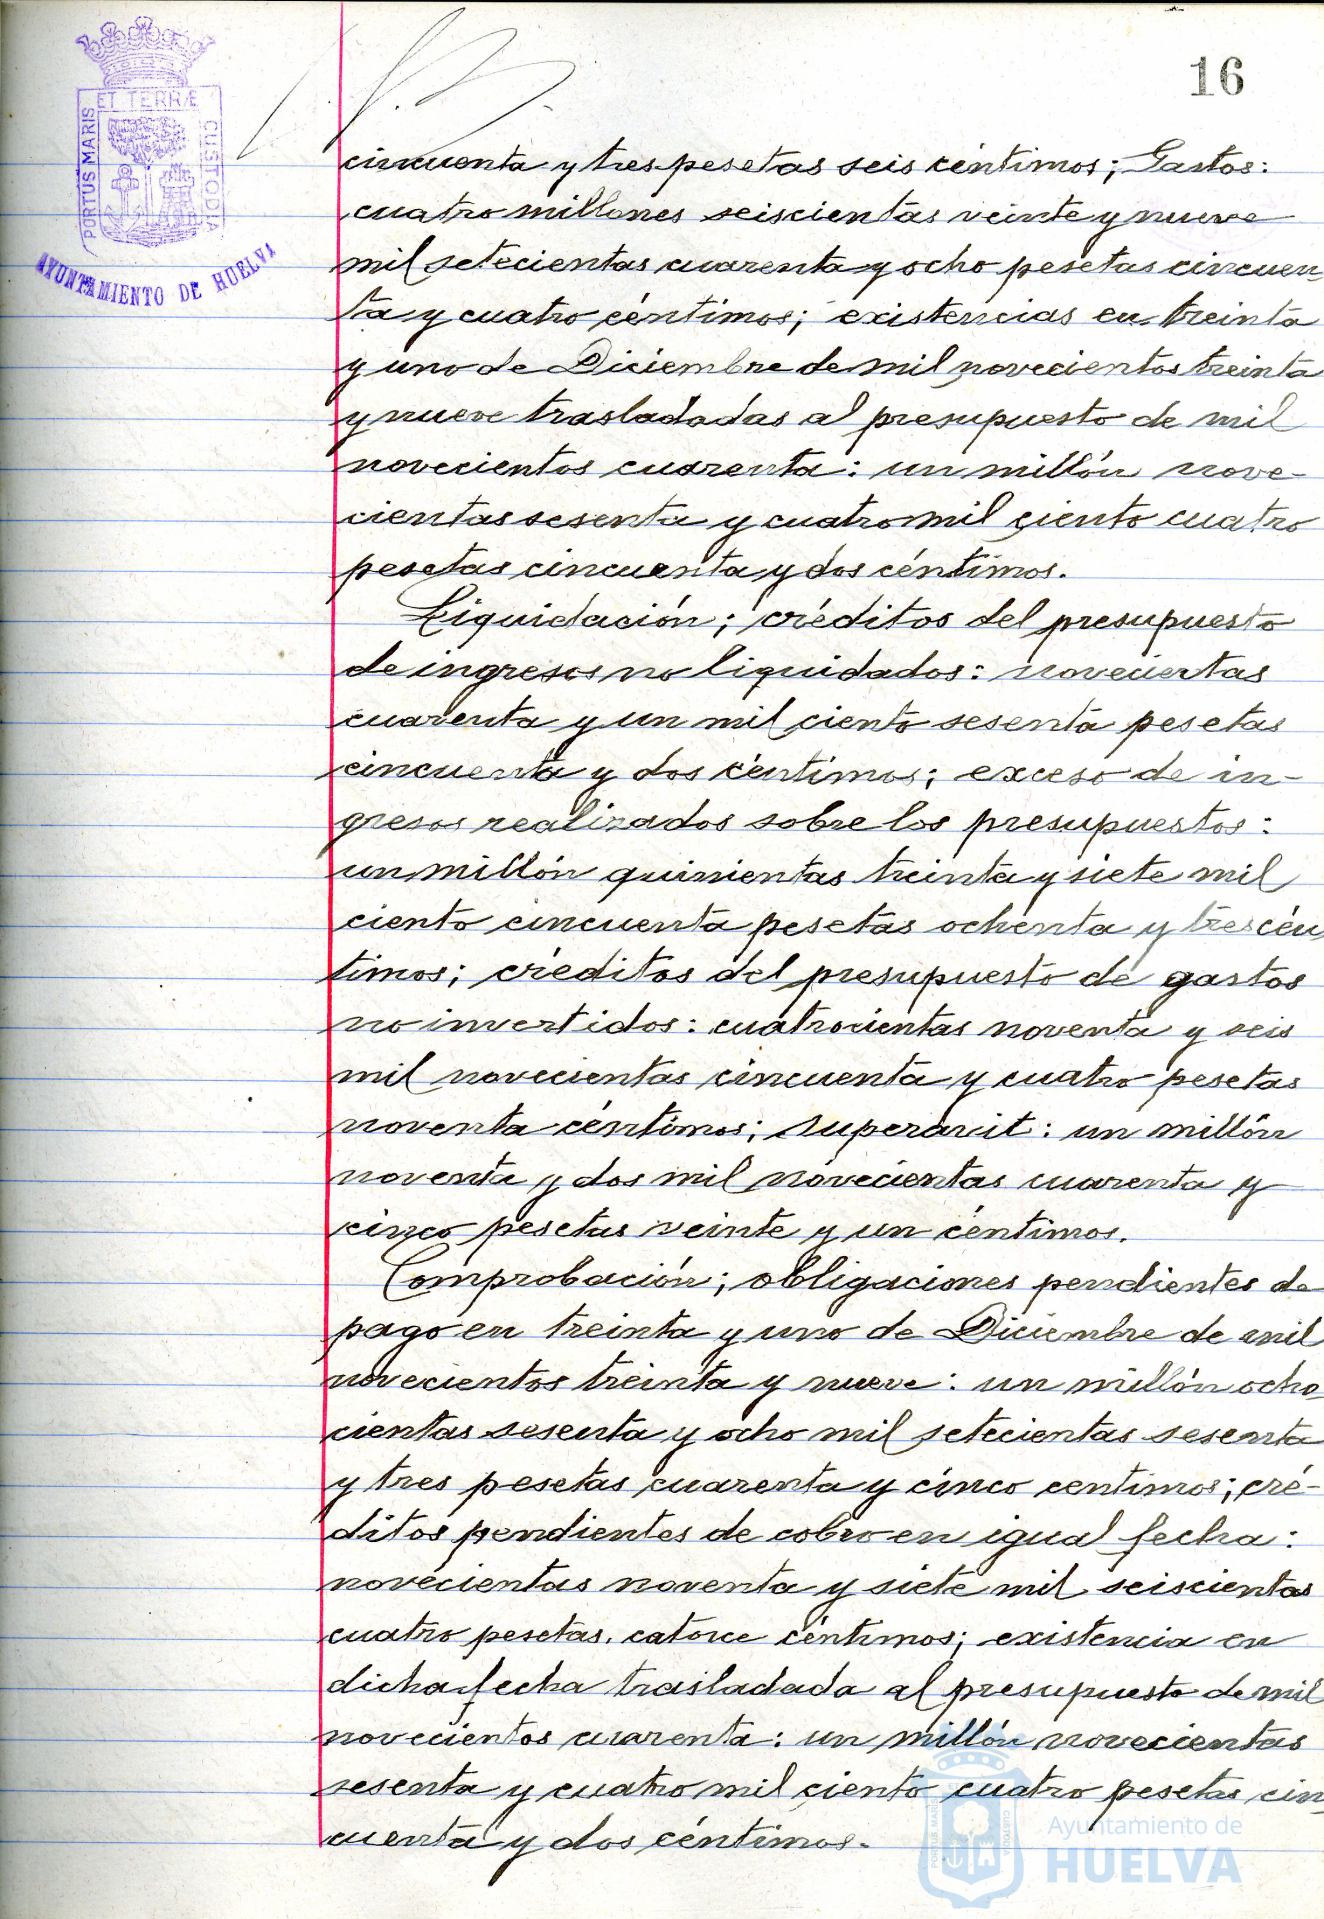 16
ET TERRÆ
PORTUS MARIS
CUSTODIA
AYUNTAMIENTO DE HUELVA
cincuenta y tres pesetas seis céntimos; Gastos:
cuatro millones seiscientas veinte y nueve
mil setecientas cuarenta y ocho pesetas cincuen-
ta y cuatro céntimos; existencias en treinta
y uno de Diciembre de mil novecientos treinta
y nueve trasladadas al presupuesto de mil
novecientos cuarenta: un millón nove-
cientas sesenta y cuatro mil ciento cuatro
pesetas cincuenta y dos céntimos.
Liquidación; créditos del presupuesto
de ingresos no liquidados: novecientas
cuarenta y un mil ciento sesenta pesetas
cincuenta y dos céntimos; exceso de in-
gresos realizados sobre los presupuestos:
un millón quinientas treinta y siete mil
ciento cincuenta pesetas ochenta y tres cén-
timos; créditos del presupuesto de gastos
no invertidos: cuatrocientas noventa y seis
mil novecientas cincuenta y cuatro pesetas
noventa céntimos; superávit: un millón
noventa y dos mil novecientas cuarenta y
cinco pesetas veinte y un céntimos.
Comprobación; obligaciones pendientes de
pago en treinta y uno de Diciembre de mil
novecientos treinta y nueve: un millón ocho-
cientas sesenta y ocho mil setecientas sesenta
y tres pesetas cuarenta y cinco centimos; cré-
ditos pendientes de cobro en igual fecha:
novecientas noventa y siete mil seiscientas
cuatro pesetas. catorce céntimos; existencia en
dicha fecha trasladada al presupuesto de mil
novecientos cuarenta: un millón novecientas
sesenta y cuatro mil ciento cuatro pesetas cin-
cuenta y dos céntimos.
Ayuntamiento de
HUELVA